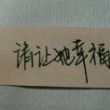 请让她幸福